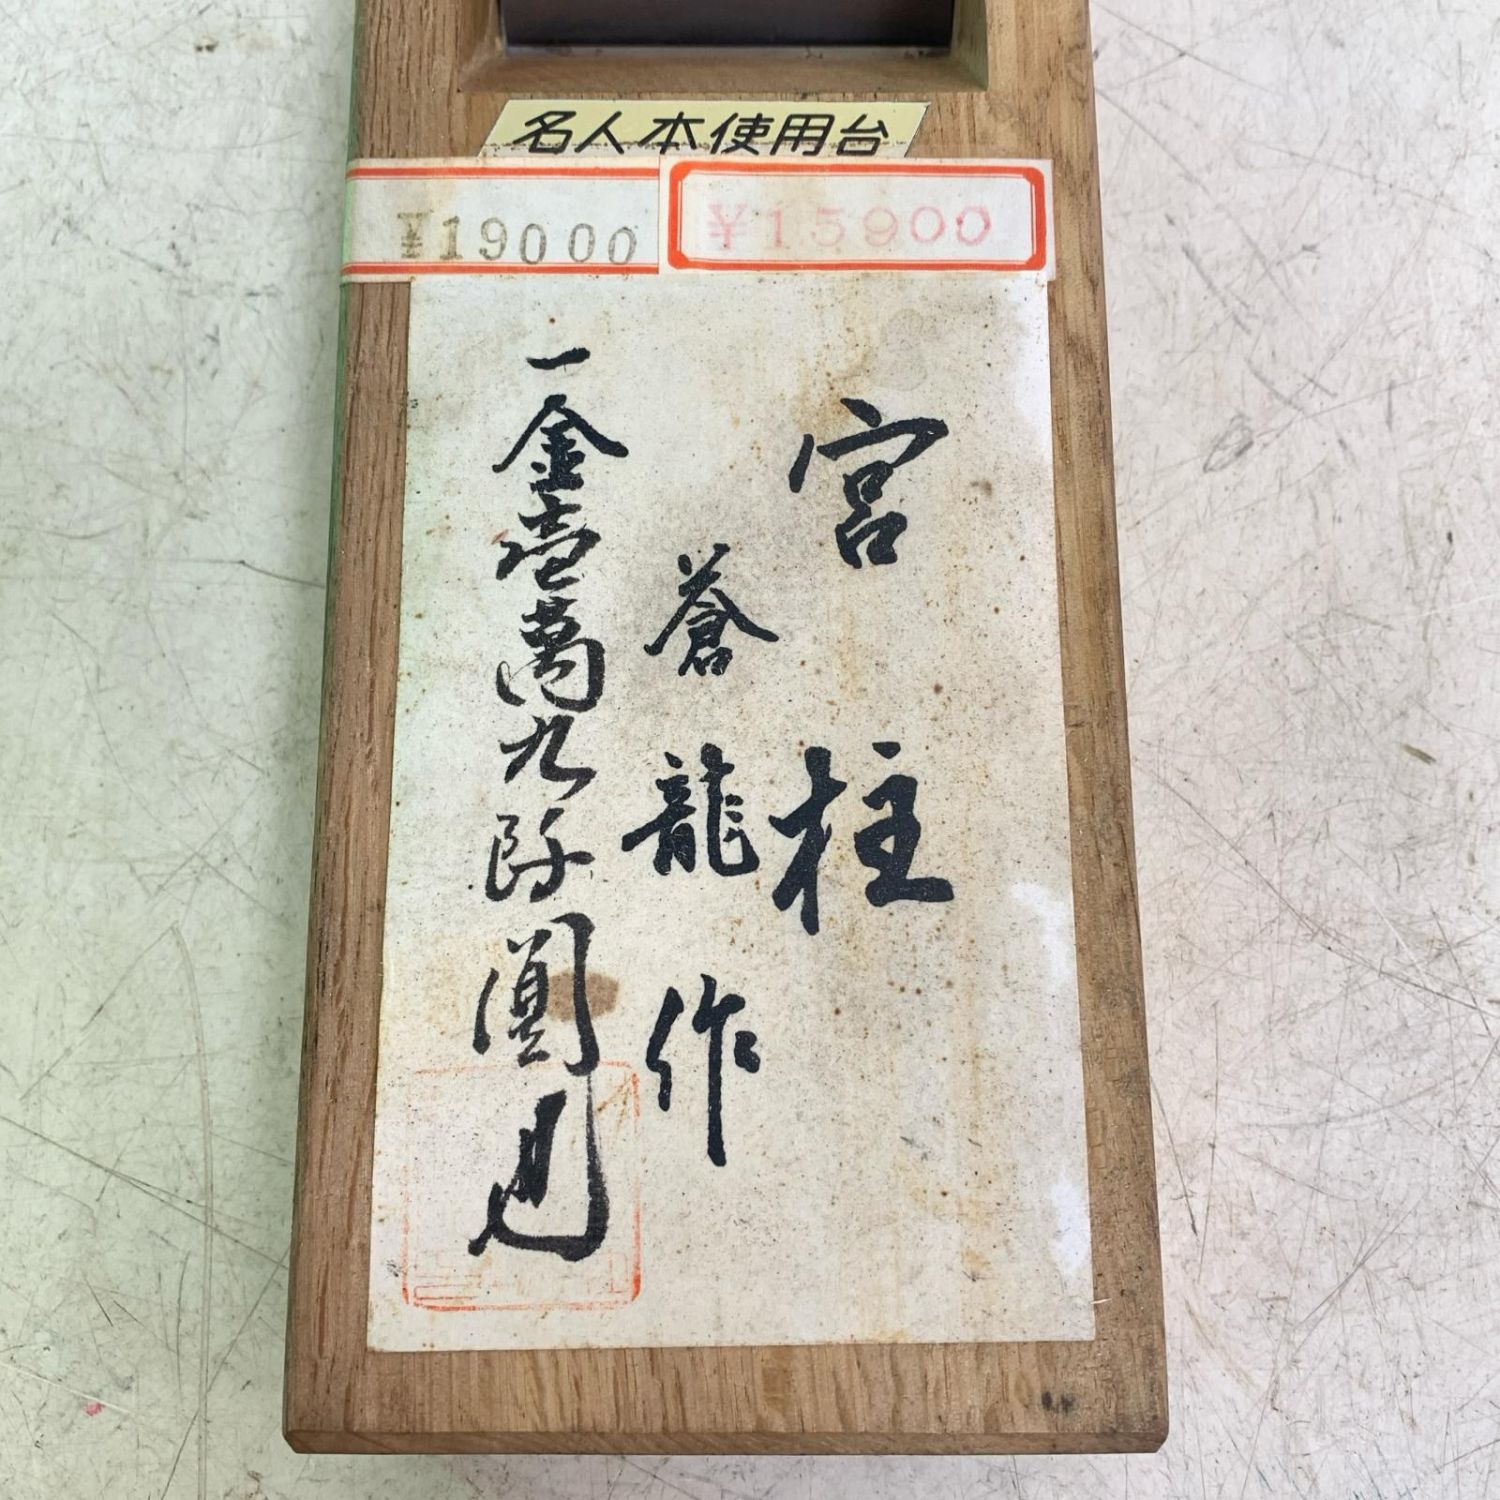 名人本使用台
¥19000
¥15900
宮柱
蒼龍作
一金壹萬九阡圓也